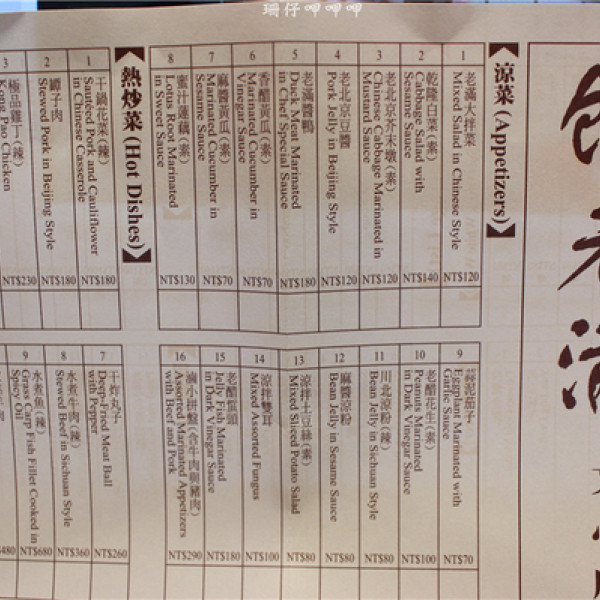 珊仔呷呷呷
老滿
涼菜 (Appetizers)
1
老滿大拌菜
Mixed Salad in Chinese Style
NT$120
2
乾隆白菜(素)
Cabbage Salad with
Sesame Sauce
NT$140
3
老北京芥末墩(素)
Chinese Cabbage Marinated in
Mustard Sauce
NT$120
4
老北京豆醬
Pork Jelly in Beijing Style
NT$120
5
老滿醬鴨
Duck Meat Marinated
in Chef Special Sauce
NT$180
6
香醋黃瓜(素)
Marined Cucumber in
Vinegar Sauce
NT$70
7
麻醬黃瓜(素)
Marinated Cucumber in
Sesame Sauce
NT$70
8
蜜汁蓮藕(素)
Lotus Root Marinated
in Sweet Sauce
NT$130
9
蒜泥茄子
Eggplant Marinated with
Garlic Sauce
NT$70
10
老醋花生(素)
Peanuts Marinated
in Dark Vinegar Sauce
NT$100
11
川北涼粉(辣)
Bean Jelly in Sichuan Style
NT$80
12
麻醬涼粉
Bean Jelly in Sesame Sauce
NT$80
13
涼拌土豆絲(素)
Mixed Sliced Potato Salad
NT$80
14
涼拌雙耳
Mixed Assorted Fungus
NT$100
15
老醋蜇頭
Jelly Fish Marinated
in Dark Vinegar Sauce
NT$180
16
滷小拼盤(含牛肉與豬肉)
Assorted Marinated Appetizers
with Beef and Pork
NT$290
熱炒菜 (Hot Dishes)
1
干鍋花菜(辣)
Sauteed Pork and Cauliflower
in Chinese Casserole
NT$180
2
罈子肉
Stewed Pork in Beijing Style
NT$180
3
極品雞丁(辣)
Kong Pao Chicken
NT$230
7
干炸丸子
Deep-Fried Meat Ball
with Pepper
NT$260
8
水煮牛肉(辣)
Stewed Beef in Sichuan Style
NT$360
9
水煮魚(辣)
Grass Carp Fish Fillet Cooked in
Spicy Oil
NT$680
$480